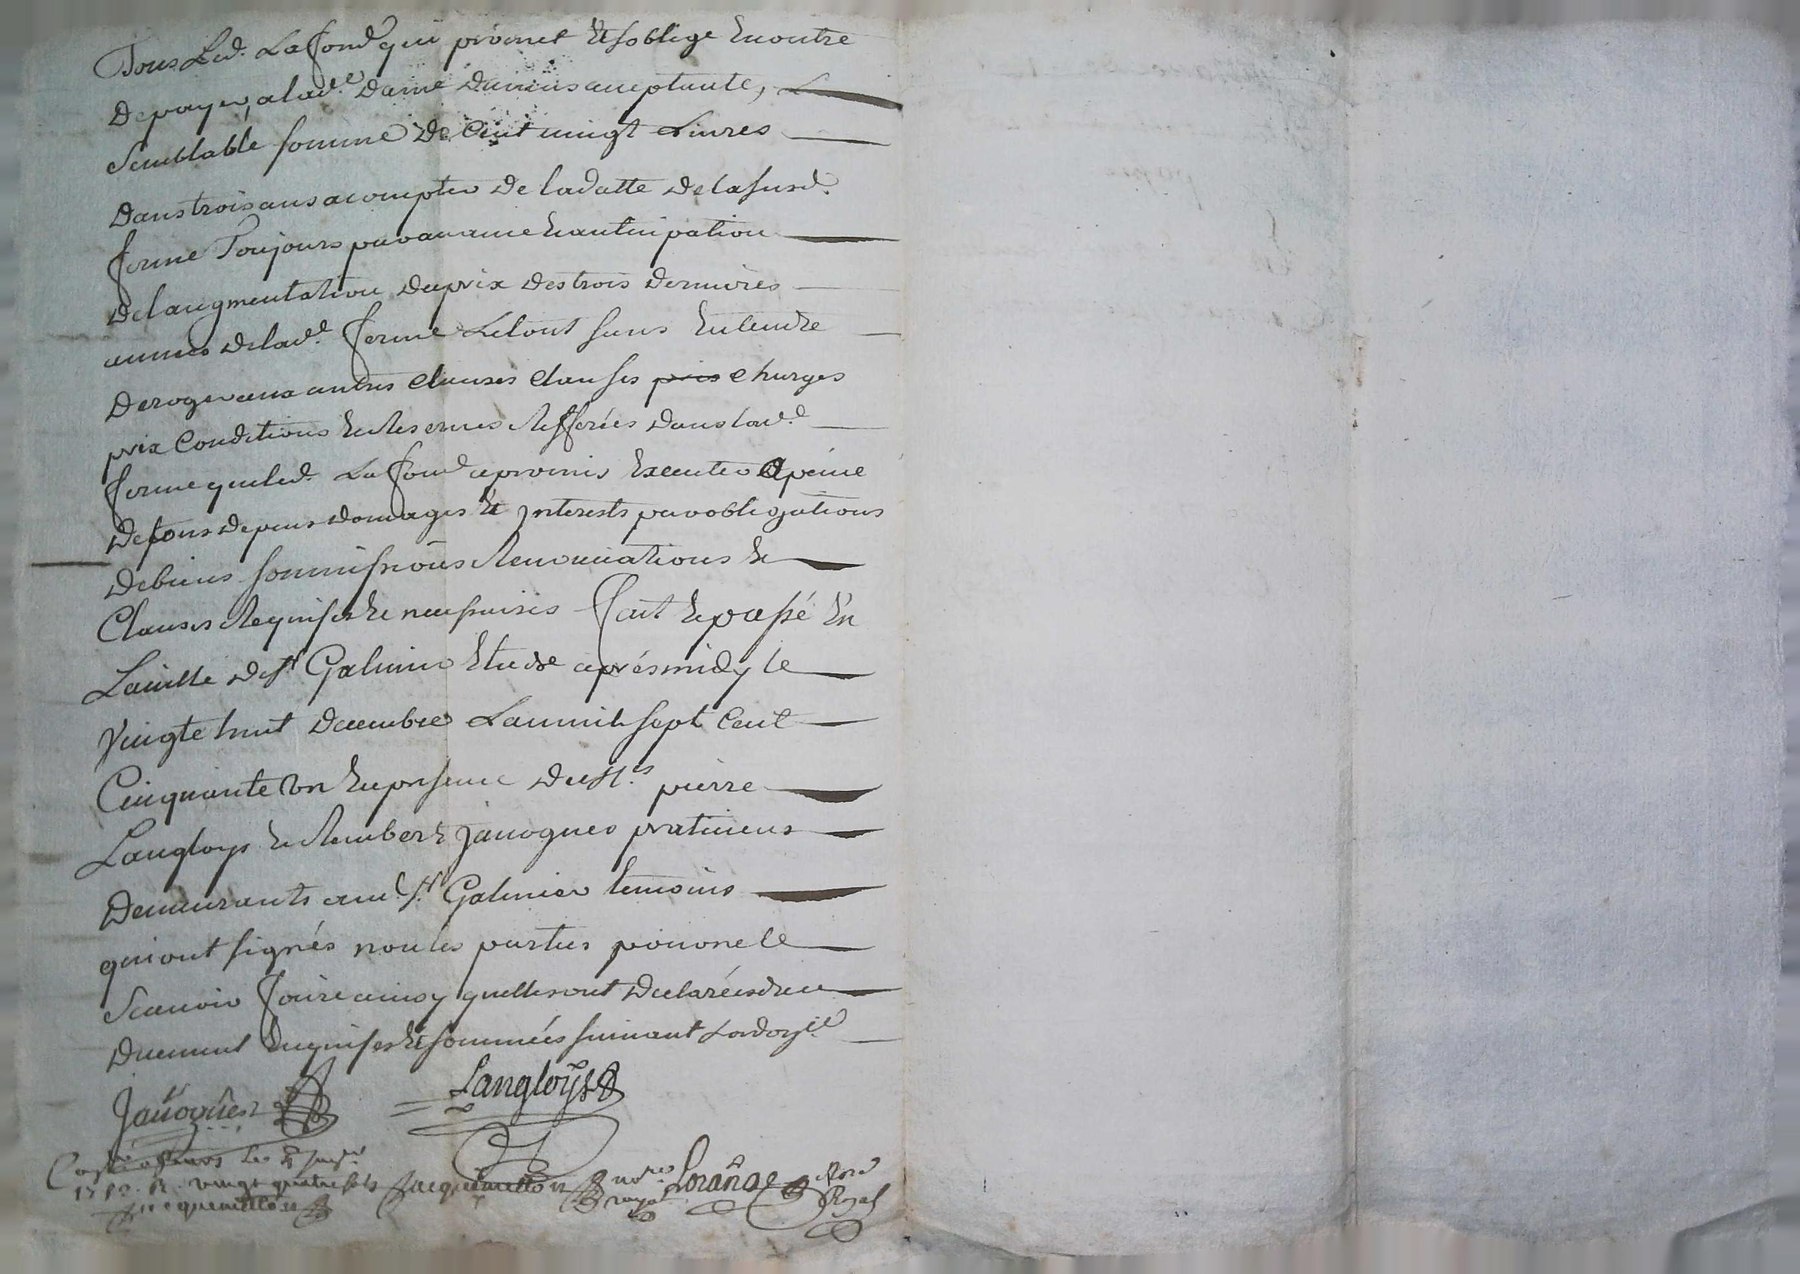 Tous Led. Lafond qui promet Et soblige En outre
De payer, a lad.e Dame Damins acceptante,
Semblable somme De Cent vingt Livres
Dans trois ans a compter De la datte De la susd.
ferme Toujours par avance Et anticipation
De laugmentation Du prix Des trois Dernieres
annees De lad.e ferme Le tout sans Entendre
Deroger aux autres Clauses charges
prix Conditions Et Reserves Refferées Dans lad.e
ferme que led. Lafond a promis Executer a peine
De tous Depens Domages Et Interests par obligations
De biens soumissions Renonciations Et
Clauses Requises Et necessaires fait Et passé En
La ville De st Galmier Etude aprés midy le
Vingt huit Decembre Lan mil sept Cent
Cinquante Un En presence De srs pierre
Langloys Et Rembert Javogues praticiens
Demeurants aud. st Galmier temoins
qui ont signés non les parties pour ne le
Scavoir faire ainsy quelles ont Declarées De ce
Duement Enquises Et sommées suivant Lordon.ce
Javogues Langloys
vingt quatre sols Jacquemetton no.re royal
Jacquemetton Royal